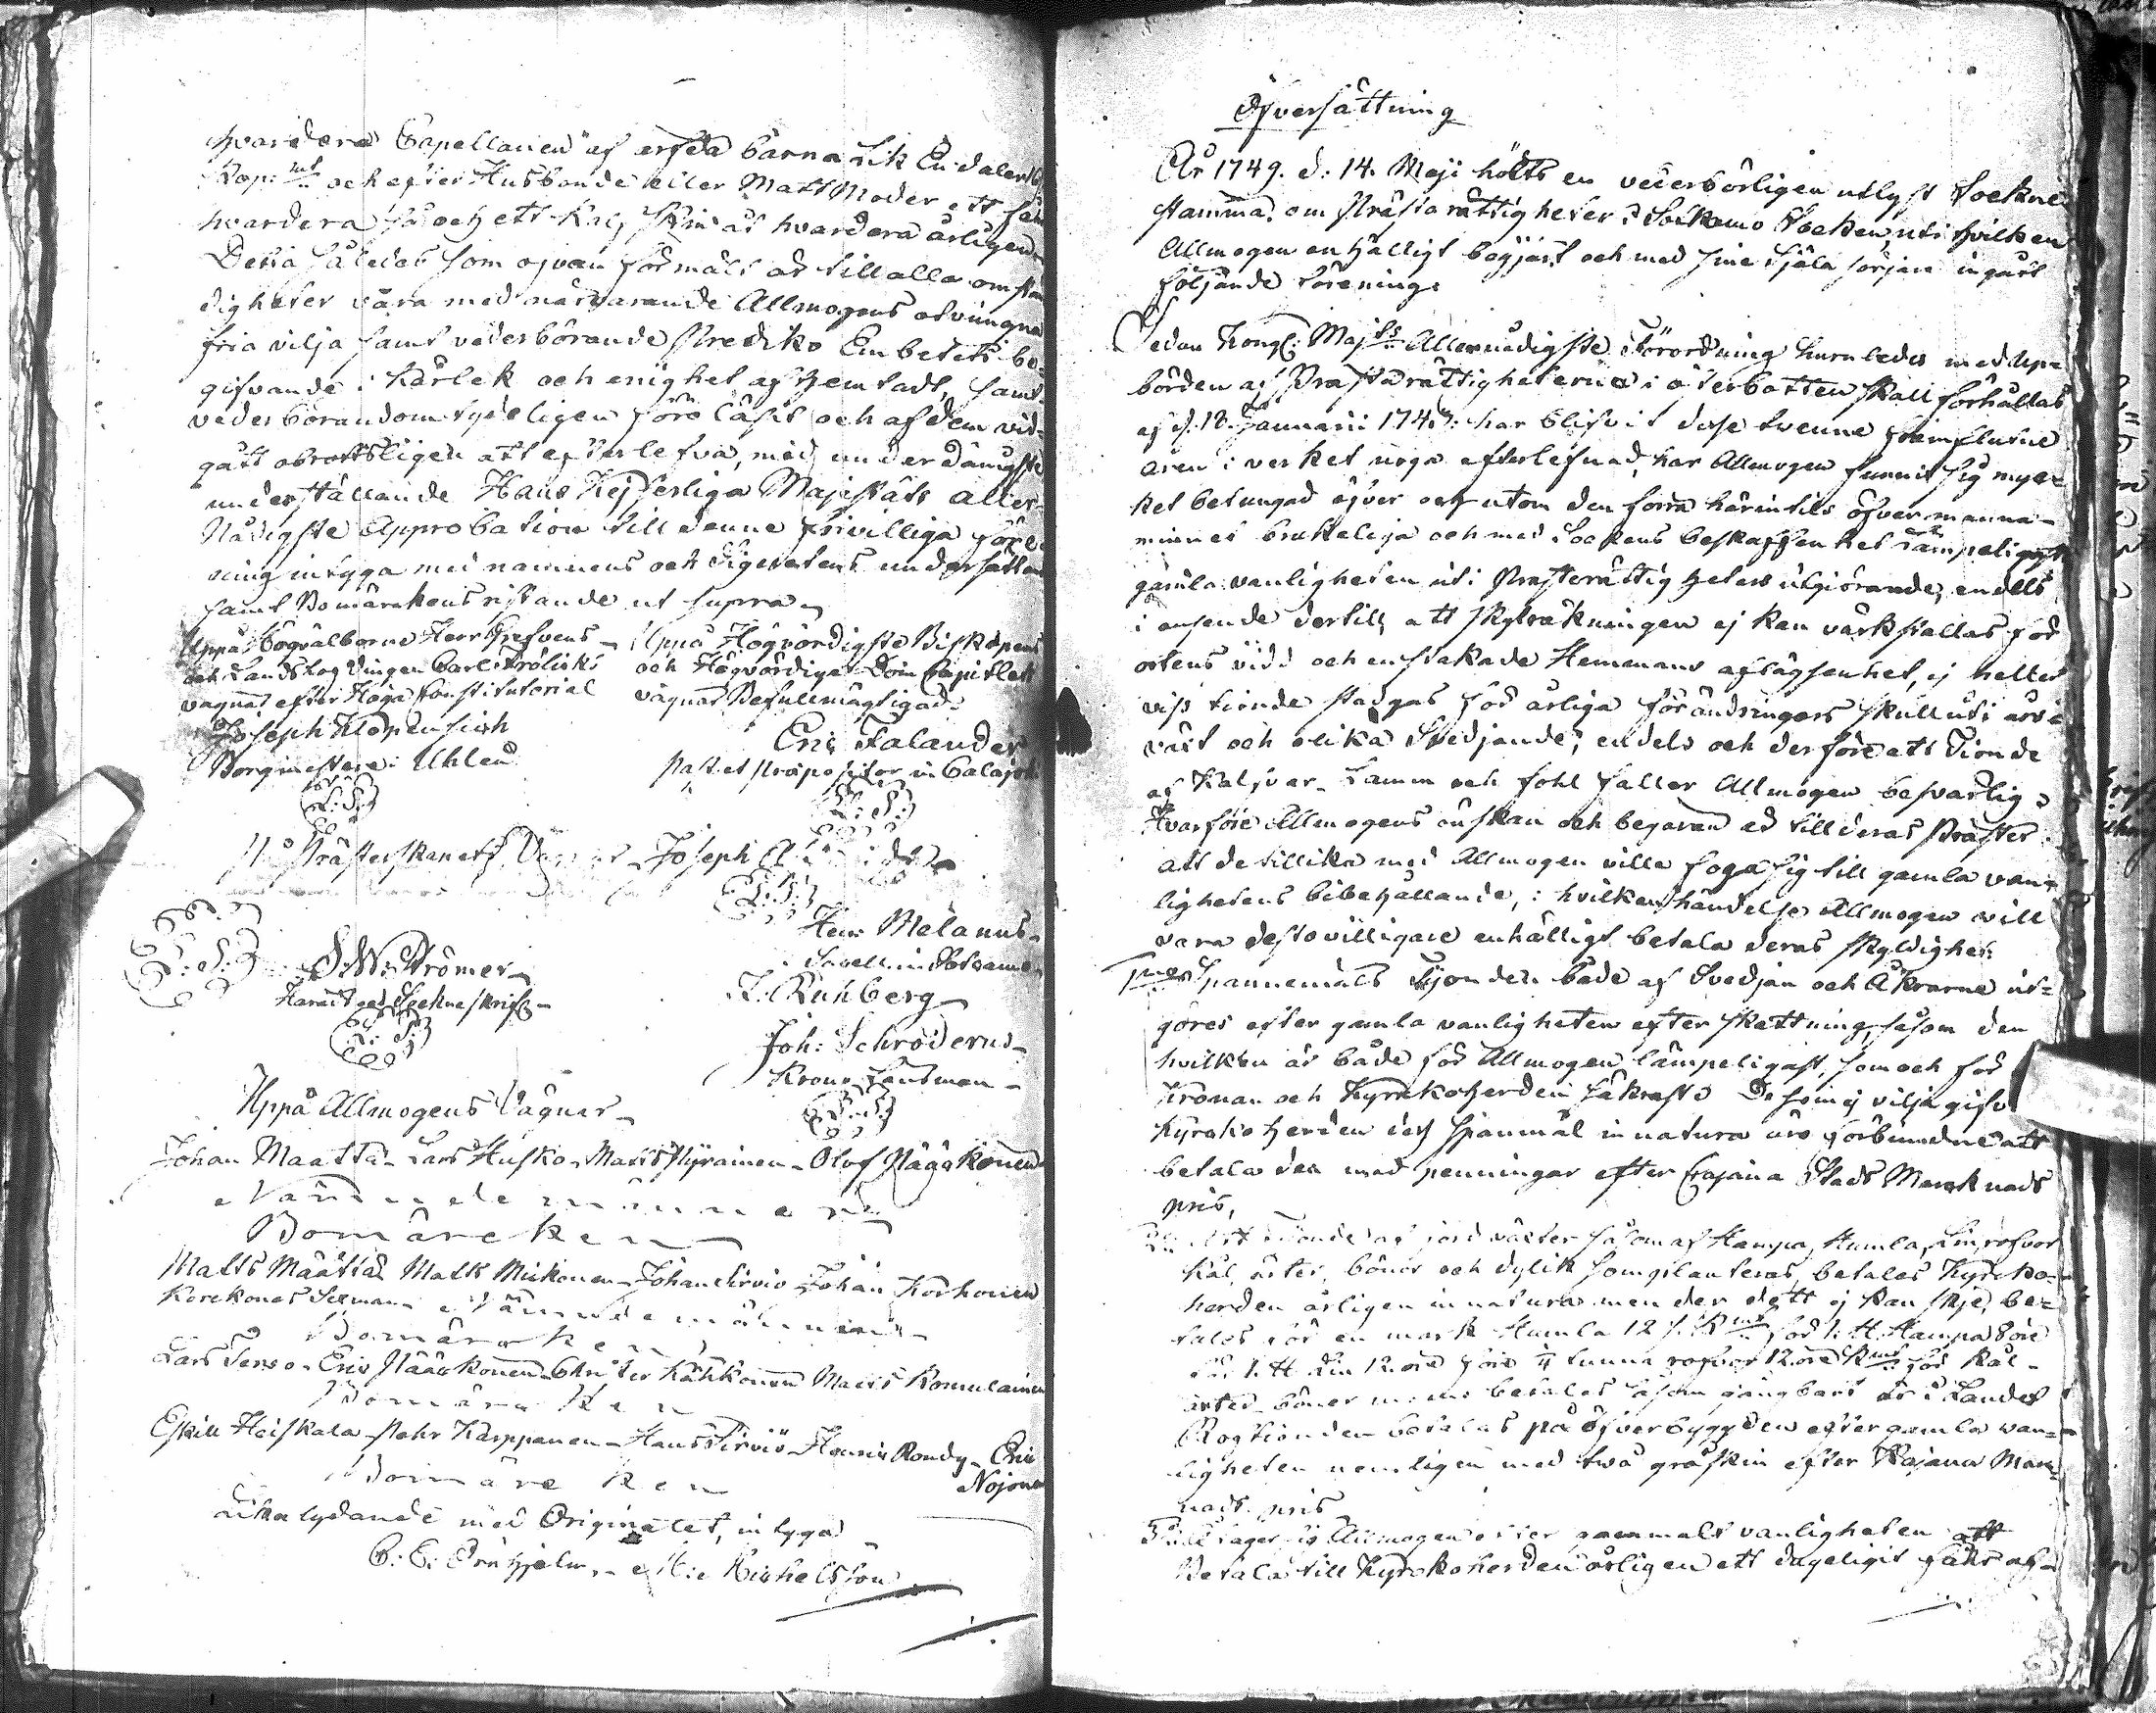 hvardera Capellanen af ersta barna Lik En daler
Kop: mt och efter Husbonde eller Matt Moder ett
hvardera få och ett Kalf Skin af hvardera årligen
Detta således som ofvan förmält är till alla omstän
digheter vara med närvarande Allmogens otvungna
fria vilja samt vederbörande Prediko Embetets be-
gifvande i Kärlek och enighet afhemtadt, samt
vederbörandom tydeligen före läsit och af dem vid-
gått obrottsligen att efterlefva, med underdånigste
understållande Hans Kejserliga Majestäts Aller-
Nådigste Approbation till denne frivilliga före-
ning intyga med namnens och Signetens undersättan
samt Bomärckens ristande ut supra
Uppå Högvälborne Herr Grefvens
och Landshögdingen Carl Frölicks
vägnar efter Höga Constitutorial
Joseph Klöpensich
Borgmästare i Uhleå
L: S:
Uppå Högvördigste Biskopens
och Högvördige Dom Capitlets
vägnar Befullmägtigad
Eric Falander
Past et Præpositor in Calajoki
L: S:
På Prästerskapets Vägnar Joseph
L: S:
Henr: Melanus
Sacell. in Sotcamo
L: S:
S: W: Strömer
Härads och Sockne skrifv
L: S:
Z: Ruhberg
Joh: Schroderus
Krono Länsman
L: S:
Uppå Allmogens Vägnar
Johan Maatta Lars Husko Matts Hyrainen Olof Pääkönen
Nämndemännen
Bomärcken
Matts Määttä Matts Mickonen Johan Sirvio Johan Korhonen
Korckones Sexman Nämndemännen
Bomärcken
Lars Servo Eric Pääckönen Christer Kähkönen Matts Komulainen
Bomärcken
Eskill Heiskala Pehr Karppanen Hans Sirviö Henric Rondy Eric
Nojonen
Bomärcken
Lika lydande med Originalet, intyga
C: C: Örnhjelm. M: Michelsson
Öfversättning
År 1749. d: 14. Maji hölts en vederbörligen utlyst Sockne
stämma, om Prästa rättigheter i Sotkamo Socken, uti hvilken
Allmogen enhälligt begjärt och med sine Själa sörjare ingått
följande förening:
Sedan Kongl: Maj:ts Allernådigste Förordning huruledes med Upp-
börden af Prästarättigheterne i Österbotten skall förhållas
af d. 18. Januarii 174 : har blifvit desse tvenne framflutne
åren i verket noga efterlefnad, har Allmogen funnit sig myc-
ket betungad öfver och utom den förra härintils öfver manna-
minnes brukeliga och med Sockens beskaffenhet lämpeligast
gamla vanligheten uti Prästerättigheters utgiörande, en dels
i anseende dertill, att skylräkningen ej kan värkställas för
ortens vidd och enstakade Hemmans aflägsenhet, ej heller
viss tionde stadgas för årliga förändringars skull uti års-
växt och olika Svedjande; en dels och derföre att Tionde
af Kalfvar Lamm och fohl faller Allmogen besvärlig
Hvarföre Allmogens önskan och begäran är till deras Präster
att de tillika med Allmogen ville foga sig till gamla van-
lighetens bibehållande, i hvilken händelse Allmogen vill
vara desto villigare enhälligt betala deras skyldighet.
1mo Spannemåls Tjonden både af Svedjan och Åkrarne ut-
göres efter gamla vanligheten efter skattning, såsom den
hvilken är både för Allmogen lämpeligast, som och för
Kronan och Kyrkoherden säkrast. De som ej vilja gifva
Kyrkoherden des spanmål in natura äro förbundne att
betala den med penningar efter Cajana Stads Marcknads
pris,
Tionde af jord växter såsom af Hampa, Humla, Lin, rofvor
kål, ärter, bönor och dylik som planteras, betales Kyrcko-
herden årligen in natura men der dett ej kan skje, be-
tales för en mark Humla 12 för 1. ℔ Hampa öre
för 1. ℔ Lin 12. öre före 1/4 tunna rofvor 12. öre Kmt för kål
ärter bönor m: m: betales såsom gångbart är i Landet
Rogtionden betalas på Öfverbygden efter gamla van-
ligheten nemligen med två gråskin efter Kajana Mark-
nads pris
3 tager sig Allmogen efter gammalt vanligheten att
Betala till Kyrckoherden årligen ett dageligit